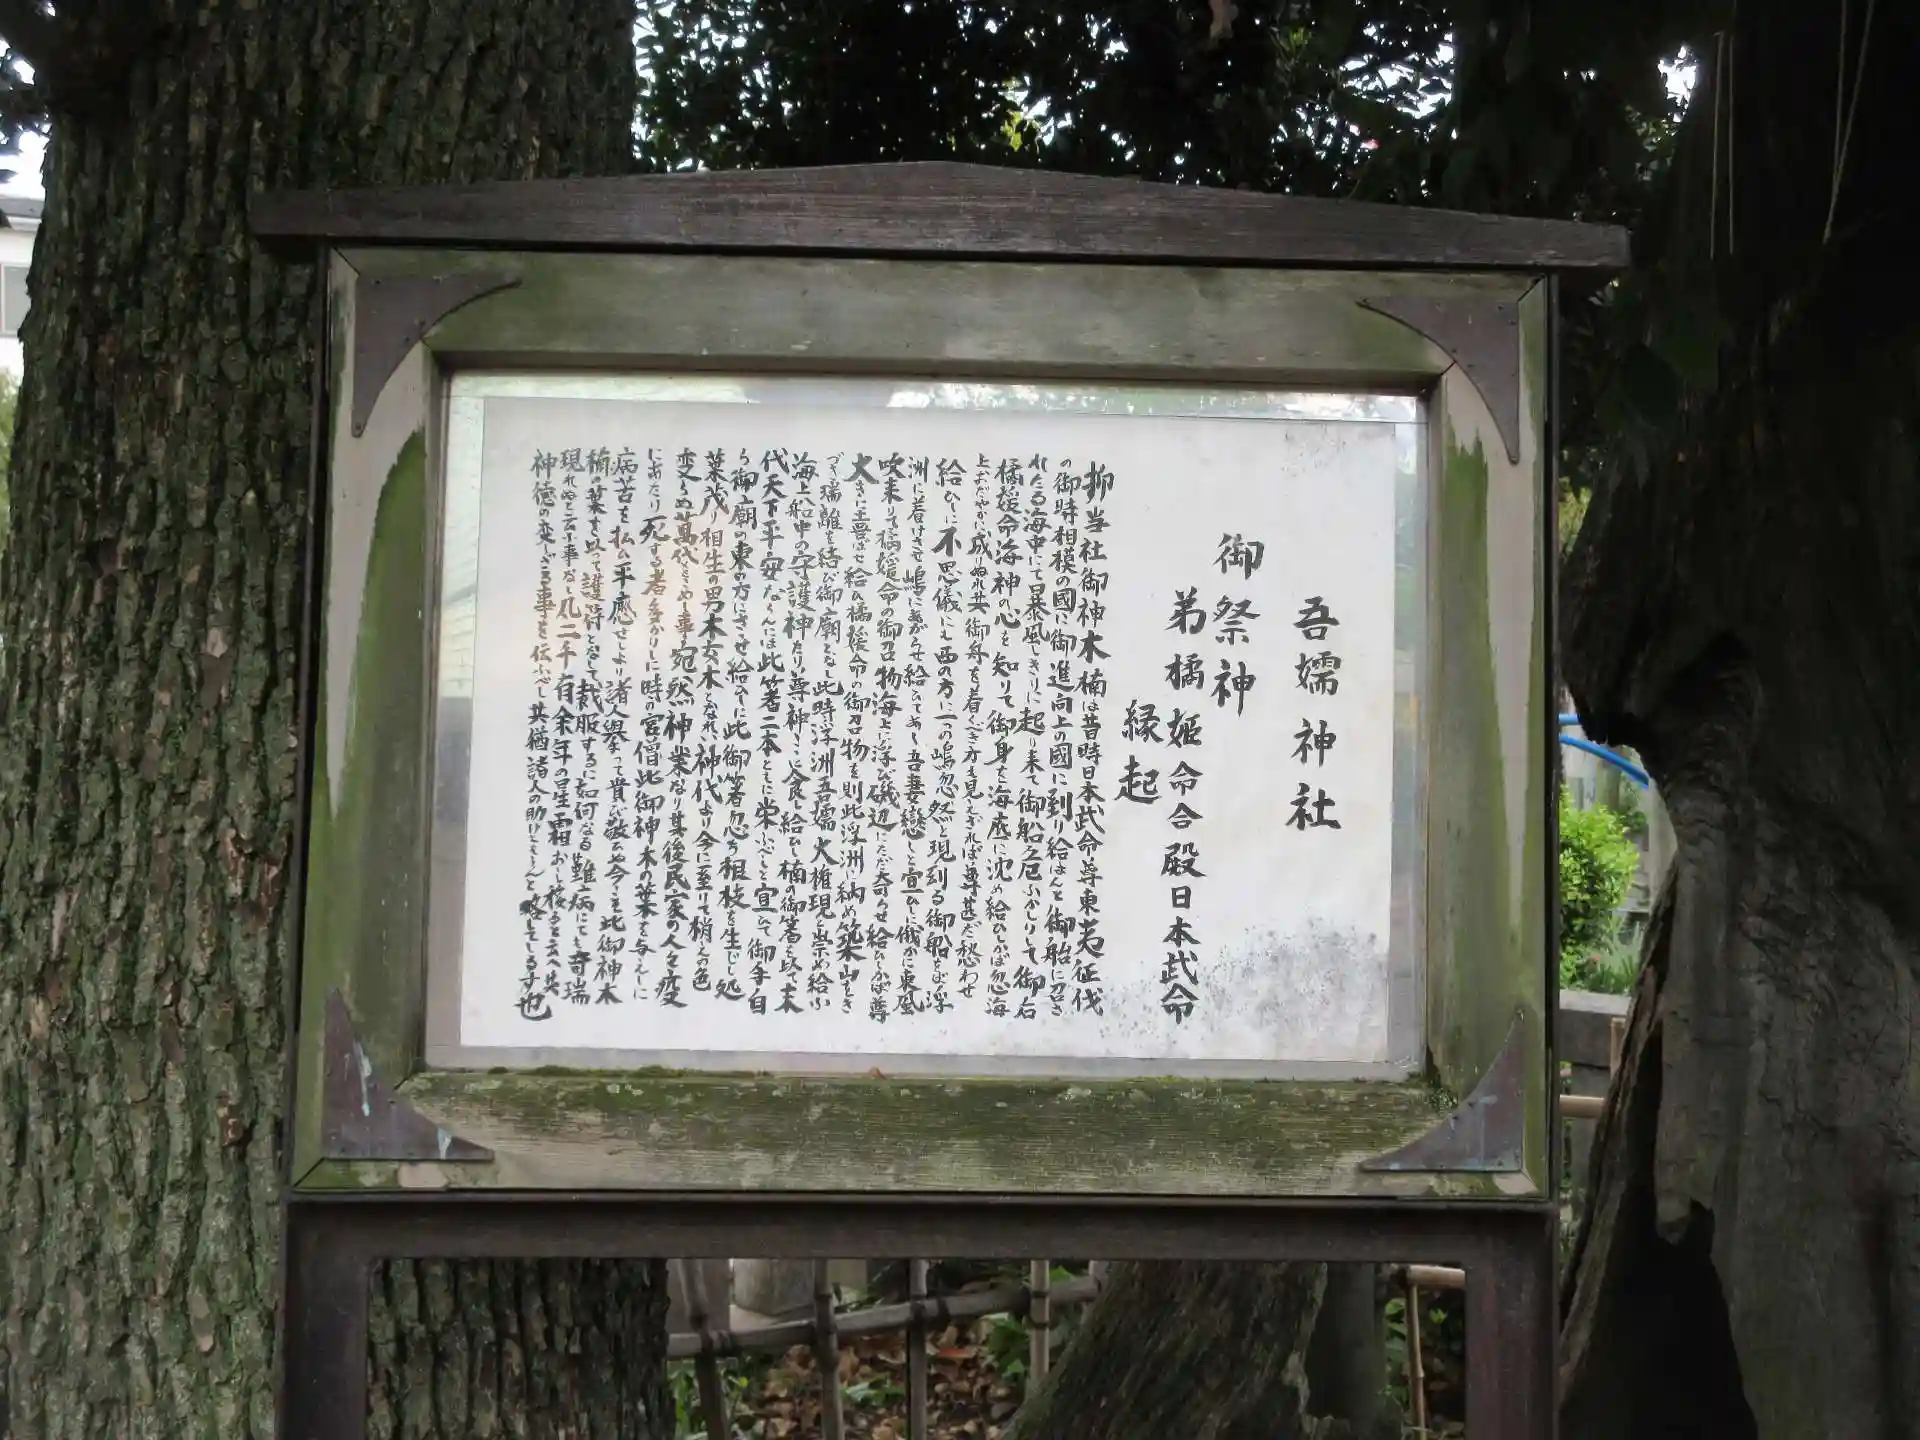 吾嬬神社
御祭神
弟橘姫命合殿日本武命
縁起
抑当社御神木楠は昔時日本武命尊東夷征伐
の御時相模の國に御進向上の國に到り給はんと御船に召さ
れたる海中にて暴風しきりに起り来て御船危ふかりしに御后
橘媛命海神の心を知りて御身を海底に沈め給ひしかば忽海
上おだやかに成りぬれ共御舟を着くべき方も見えざれば尊甚だ愁わせ
給ひしに不思儀にも西の方に一つの嶋忽然と現到る御船をば浮
洲に着けさせ嶋にあがらせ給ひてあゝ吾妻戀しと宣ひしに俄かに東風
吹来りて橘媛命の御召物海上に浮び磯辺にただ寄らせ給ひしかば尊
大きに喜ばせ給ひ橘媛命の御召物を則此浮洲に納め築山をき
づき瑞離を結び御廟となし此時浮洲吾嬬大権現と崇め給ふ
海上船中の守護神たり尊神こゝに食し給ひし楠の御箸を以て末
代天下平安ならんには此箸二本ともに栄ふべしと宣ひて御手自
ら御廟の東の方にさゝせ給ひしに此御箸忽ち根枝を生じし処
葉茂り相生の男木女木となれり神代より今に至りて梢えの色
変らぬ萬代をこめし事宛然神業なり其後民家の人々疫
にあたり死する者多かりしに時の宮僧此御神木の葉を与えしに
病苦を払ひ平癒せしより諸人挙って貴び敬ひぬ今こそ此御神木
楠の葉を以って護符となして裁服するに如何なる難病にても奇瑞
現れぬと云ふ事なし凡二千有余年の星霜おし移ると云へ共
神徳の変らざる事を伝ふべし其猶諸人の助けともならんと略してしるす也